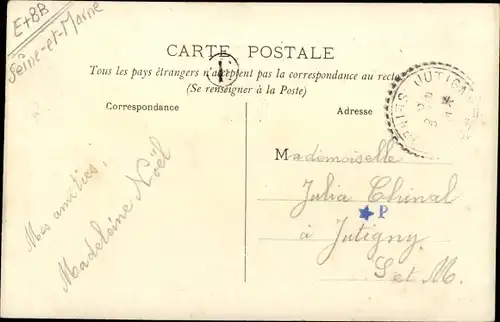 E+8B
Seine-et-Marne
CARTE POSTALE
I
Tous les pays étrangers n'acceptent pas la correspondance au recto
(Se renseigner à la Poste)
Correspondance
Adresse
JUTIGNY
Mes amitiés.
Madeleine Noël
Mademoiselle
Julia Chinal
P
à Jutigny
S et M.